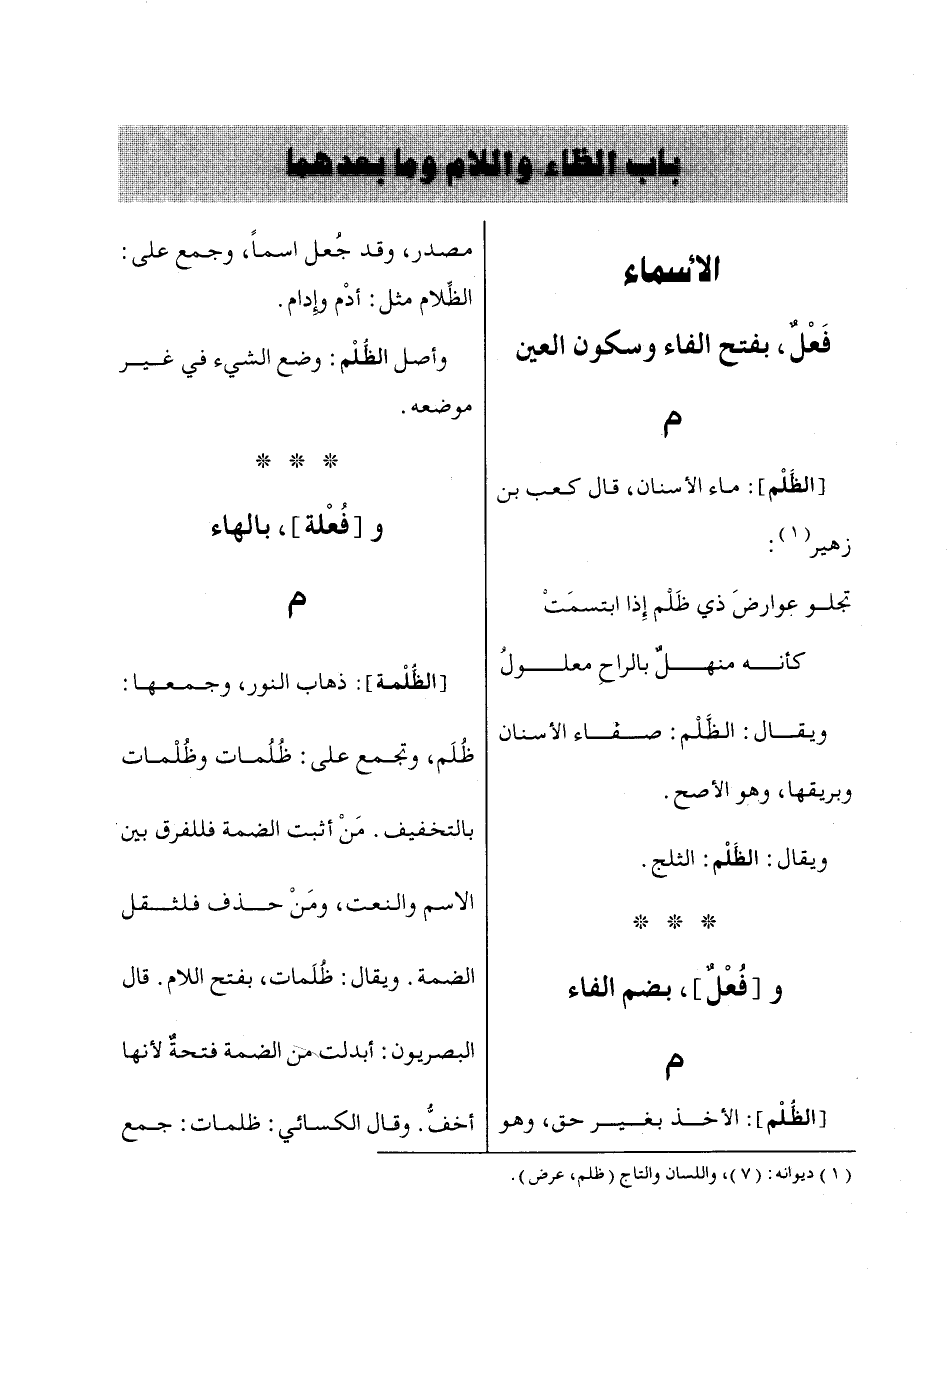 باب الظاء واللام وما بعدهما
الأسماء
فَعْلٌ، بفتح الفاء وسكون العين
م
[الظَّلْم]: ماء الأسنان، قال كعب بن
زهير(١):
تجلو عوارضَ ذي ظَلْم إِذا ابتسمَتْ
كأنه منهلٌ بالراحِ معلولُ
ويقال: الظَّلْم: صفاء الأسنان
وبريقها، وهو الأصح.
ويقال: الظَّلْم: الثلج.
* * *
و [فُعْلٌ]، بضم الفاء
م
[الظُّلْم]: الأخذ بغير حق، وهو
مصدر، وقد جُعل اسماً، وجمع على:
الظِّلام مثل: أدْم وإِدام.
وأصل الظُّلْم: وضع الشيء في غير
موضعه.
* * *
و [فُعْلة]، بالهاء
م
[الظُّلْمة]: ذهاب النور، وجمعها:
ظُلَم، وتجمع على: ظُلُمات وظُلْمات
بالتخفيف. مَنْ أثبت الضمة فللفرق بين
الاسم والنعت، ومَنْ حذف فلثقل
الضمة. ويقال: ظُلَمات، بفتح اللام. قال
البصريون: أبدلت من الضمة فتحةٌ لأنها
أخفُّ. وقال الكسائي: ظلمات: جمع
(١) ديوانه: (٧)، واللسان والتاج (ظلم، عرض).